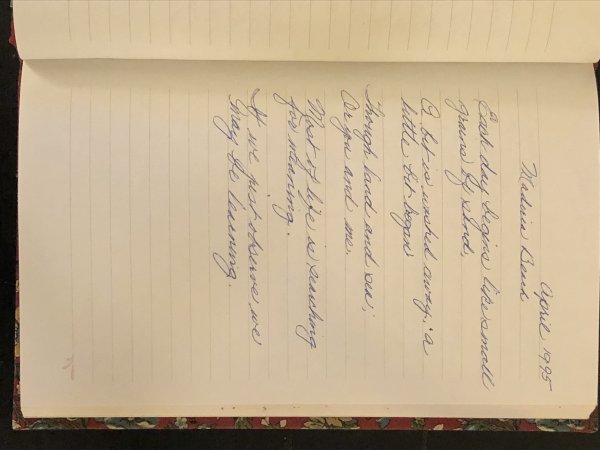 April 1995
Madeira Beach
Each day begins like small
grains of sand,
A bit is washed away; a
little bit began
Through land and sea;
Or you and me.
Most of life is searching
for meaning.
If we just observe we
may be learning.